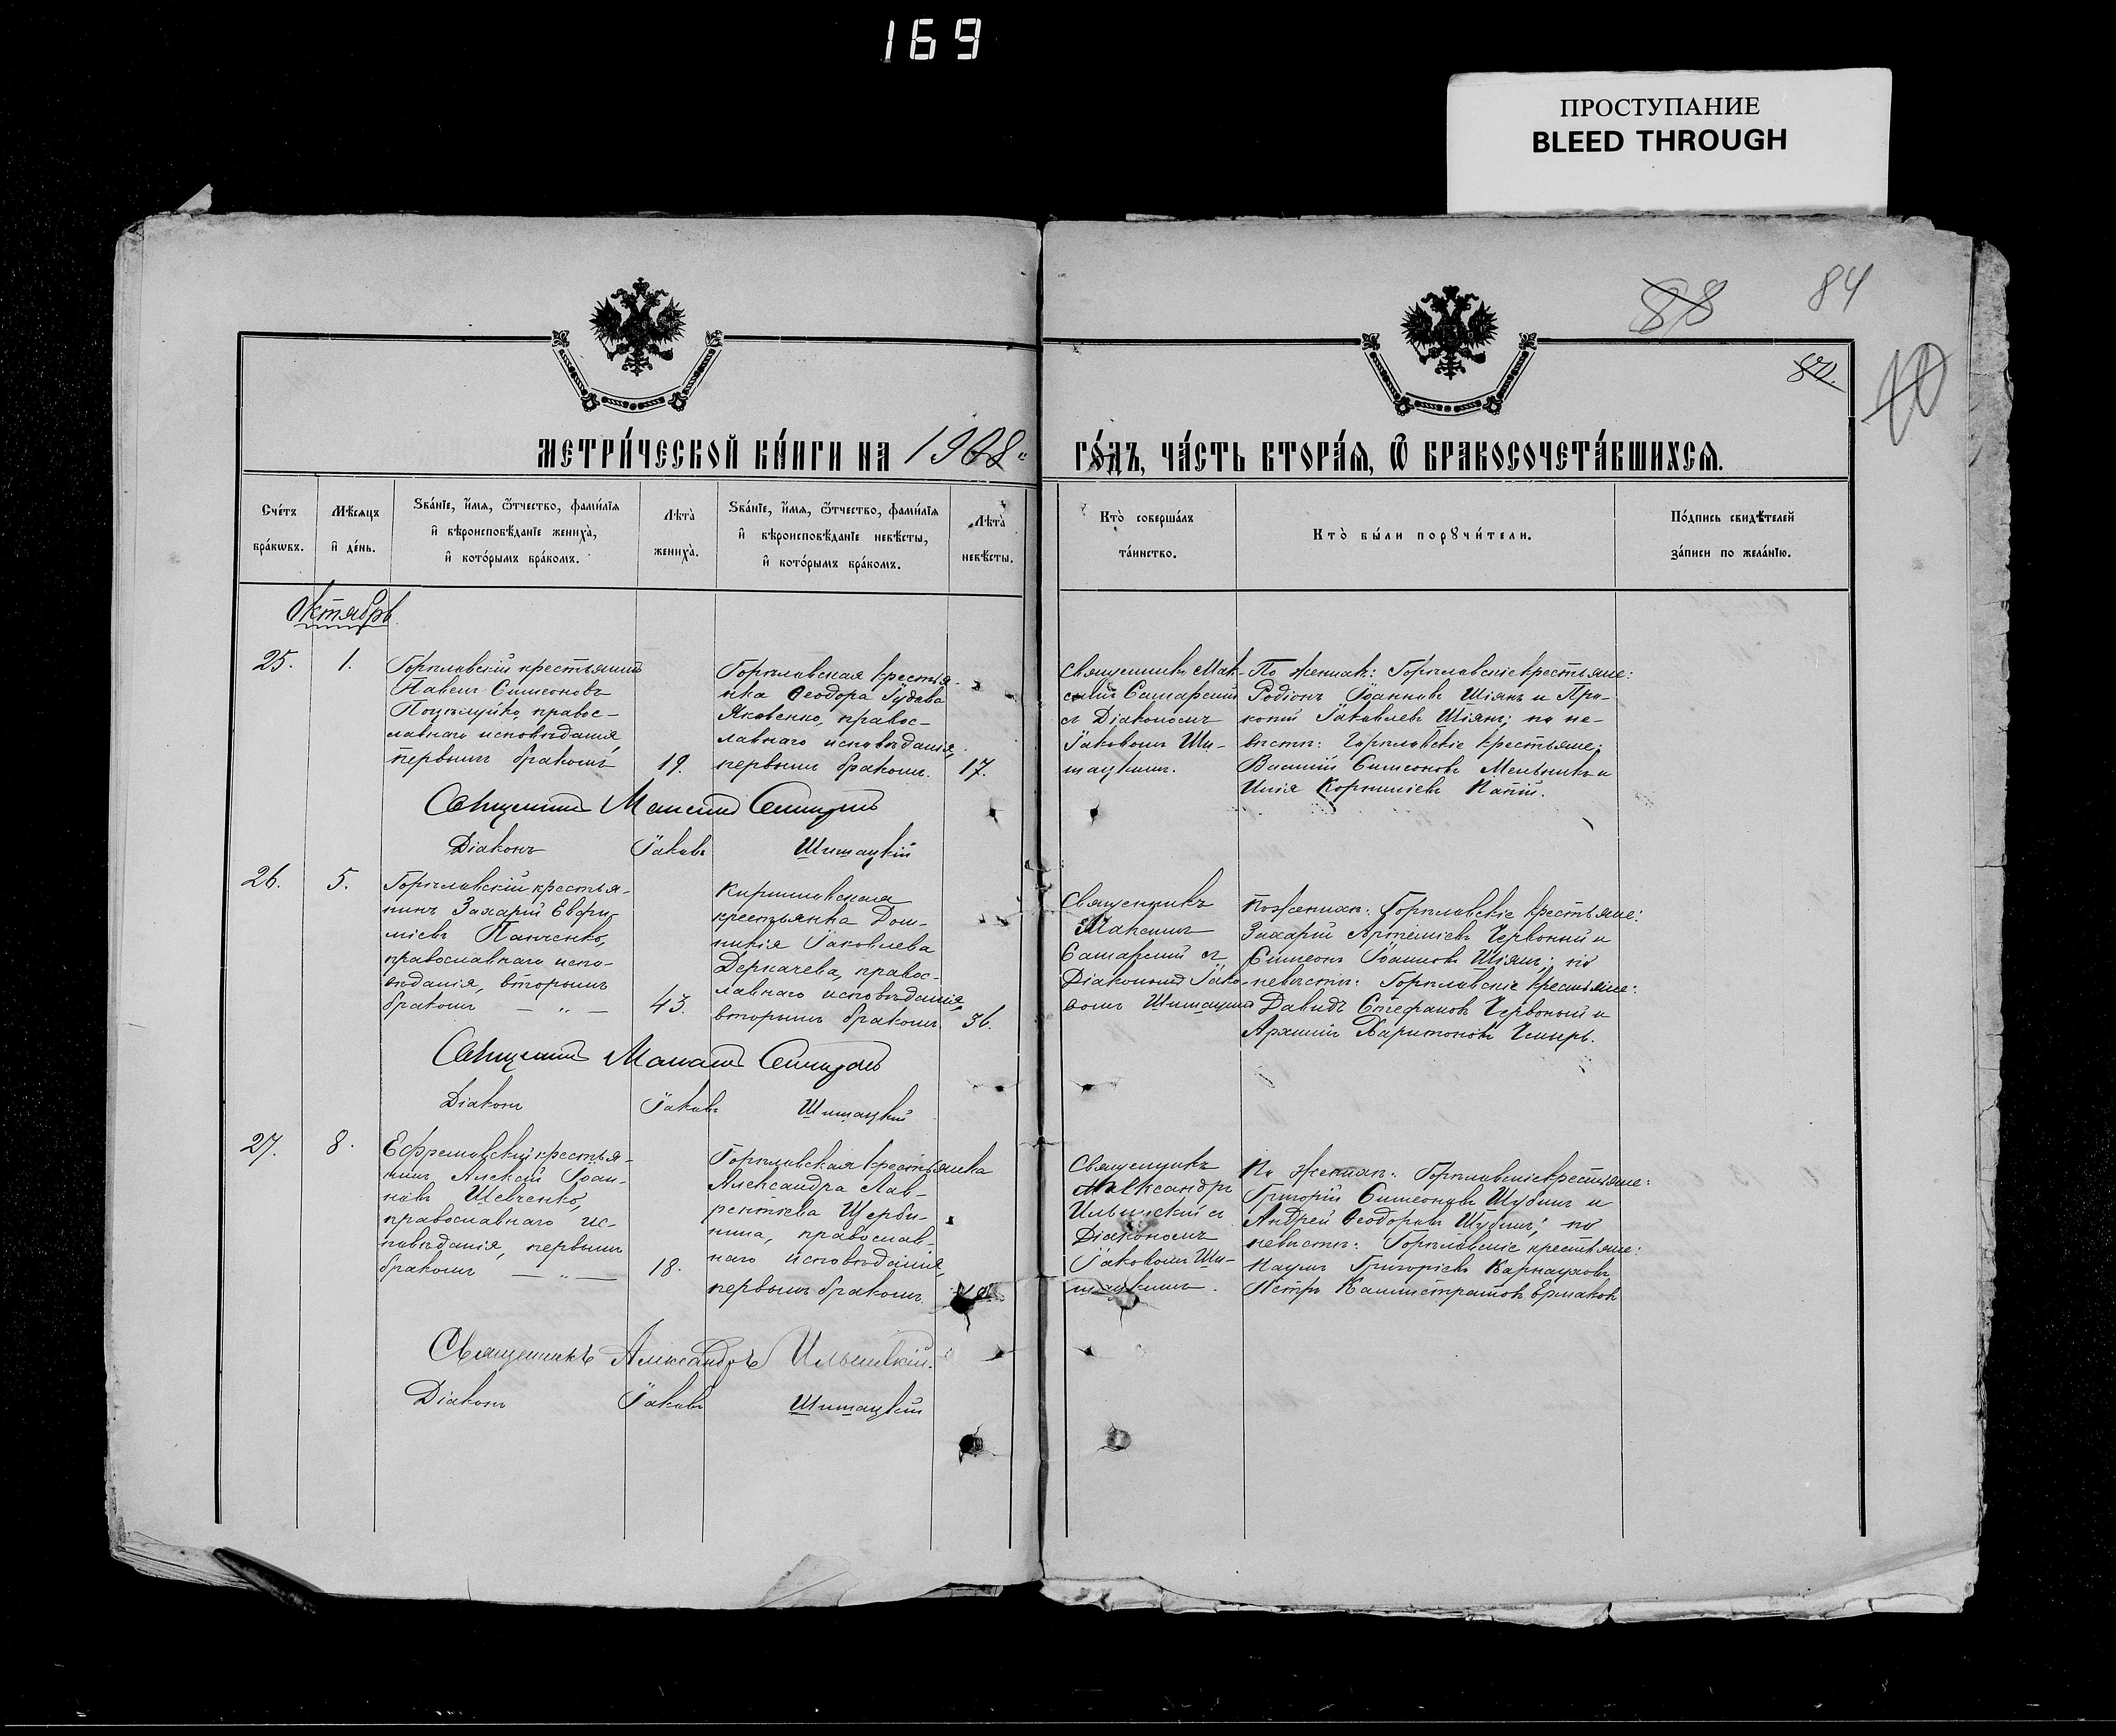 169
ПРОСТУПАНИЕ
BLEED THROUGH
88
84
МЕТРИ́ЧЕСКОЙ КНИ́ГИ НА 1908 ГО́ДЪ, ЧА́СТЬ ВТОРА́Я, Ѿ БРАКОСОЧЕТА́ВШИХСЯ.
Сче́тъ
бра́кѡвъ.
Мѣ́сяцъ
и҆ де́нь.
Ѕва́нїе, и҆́мя, ѻ҆́тчество, фами́лїя
и҆ вѣроисповѣ́данїе жениха̀,
и҆ кото́рымъ бра́комъ.
Лѣ́та̀
жениха̀.
Ѕва́нїе, и҆́мя, ѻ҆́тчество, фами́лїя
и҆ вѣроисповѣ́данїе невѣ́сты,
и҆ кото́рымъ бра́комъ.
Лѣ́та̀
невѣ́сты.
Кто̀ соверша́лъ
та́инство.
Кто̀ бы́ли порꙋчи́тели.
По́дпись свидѣ́телей
за́писи по жела́нїю.
Октябрь.
25.
1.
Горѣловскій крестьянинъ
Павелъ Симеоновъ
правос-
лавнаго исповѣданія,
первымъ бракомъ
19.
Горѣловская крестья-
нка Ѳеодора
Яковенко, правос-
лавнаго исповѣданія,
первымъ бракомъ.
17.
Священникъ Мак-
симъ Самарскій
съ Діакономъ
Іаковомъ Ши-
шацкимъ.
По женихѣ: Горѣловскіе крестьяне:
Родіонъ Іоанновъ Шіянъ и Про-
копій Іаковлевъ Шіянъ; по не-
вѣстѣ: Горѣловскіе крестьяне:
Василій Симеоновъ Мельникъ и
Илія Корниліевъ
Священникъ Максимъ Самарскій
Діаконъ Іаковъ Шишацкій
26.
5.
Горѣловскій крестья-
нинъ Захарій Евфи-
міевъ Панченко,
православнаго испо-
вѣданія, вторымъ
бракомъ — „ —
43.
крестьянка Дом-
никія Іаковлева
Деркачева, правос-
лавнаго исповѣданія,
вторымъ бракомъ.
36.
Священникъ
Максимъ
Самарскій съ
Діакономъ Іако-
вомъ Шишацкимъ
По женихѣ: Горѣловскіе крестьяне:
Захарій Артеміевъ Червоный и
Симеонъ Іоанновъ Шіянъ; по
невѣстѣ: Горѣловскіе крестьяне:
Давидъ Стефановъ Червоный и
Харитоновъ
Священникъ Максимъ Самарскій
Діаконъ Іаковъ Шишацкій
27.
8.
Ефремовскій крестья-
нинъ Алексій Іоан-
новъ Шевченко,
православнаго ис-
повѣданія, первымъ
бракомъ — „ —
18.
Горѣловская крестьянка
Александра Лав-
рентіева Щерби-
нина, православ-
наго исповѣданія,
первымъ бракомъ.
Священникъ
Александръ
Ильинскій съ
Діакономъ
Іаковомъ Ши-
шацкимъ.
По женихѣ: Горѣловскіе крестьяне:
Григорій Симеоновъ Шубинъ и
Андрей Ѳеодоровъ Шубинъ; по
невѣстѣ: Горѣловскіе крестьяне:
Наумъ Григорьевъ Карнауховъ
Петръ Каллистратовъ Ермаковъ
Священникъ Александръ Ильинскій.
Діаконъ Іаковъ Шишацкій